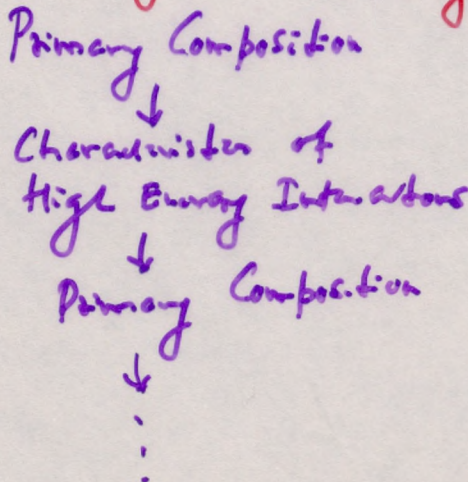 Primary Composition
↓
Characteristics of
High Energy Interactions
↓
Primary Composition
↓
⋮